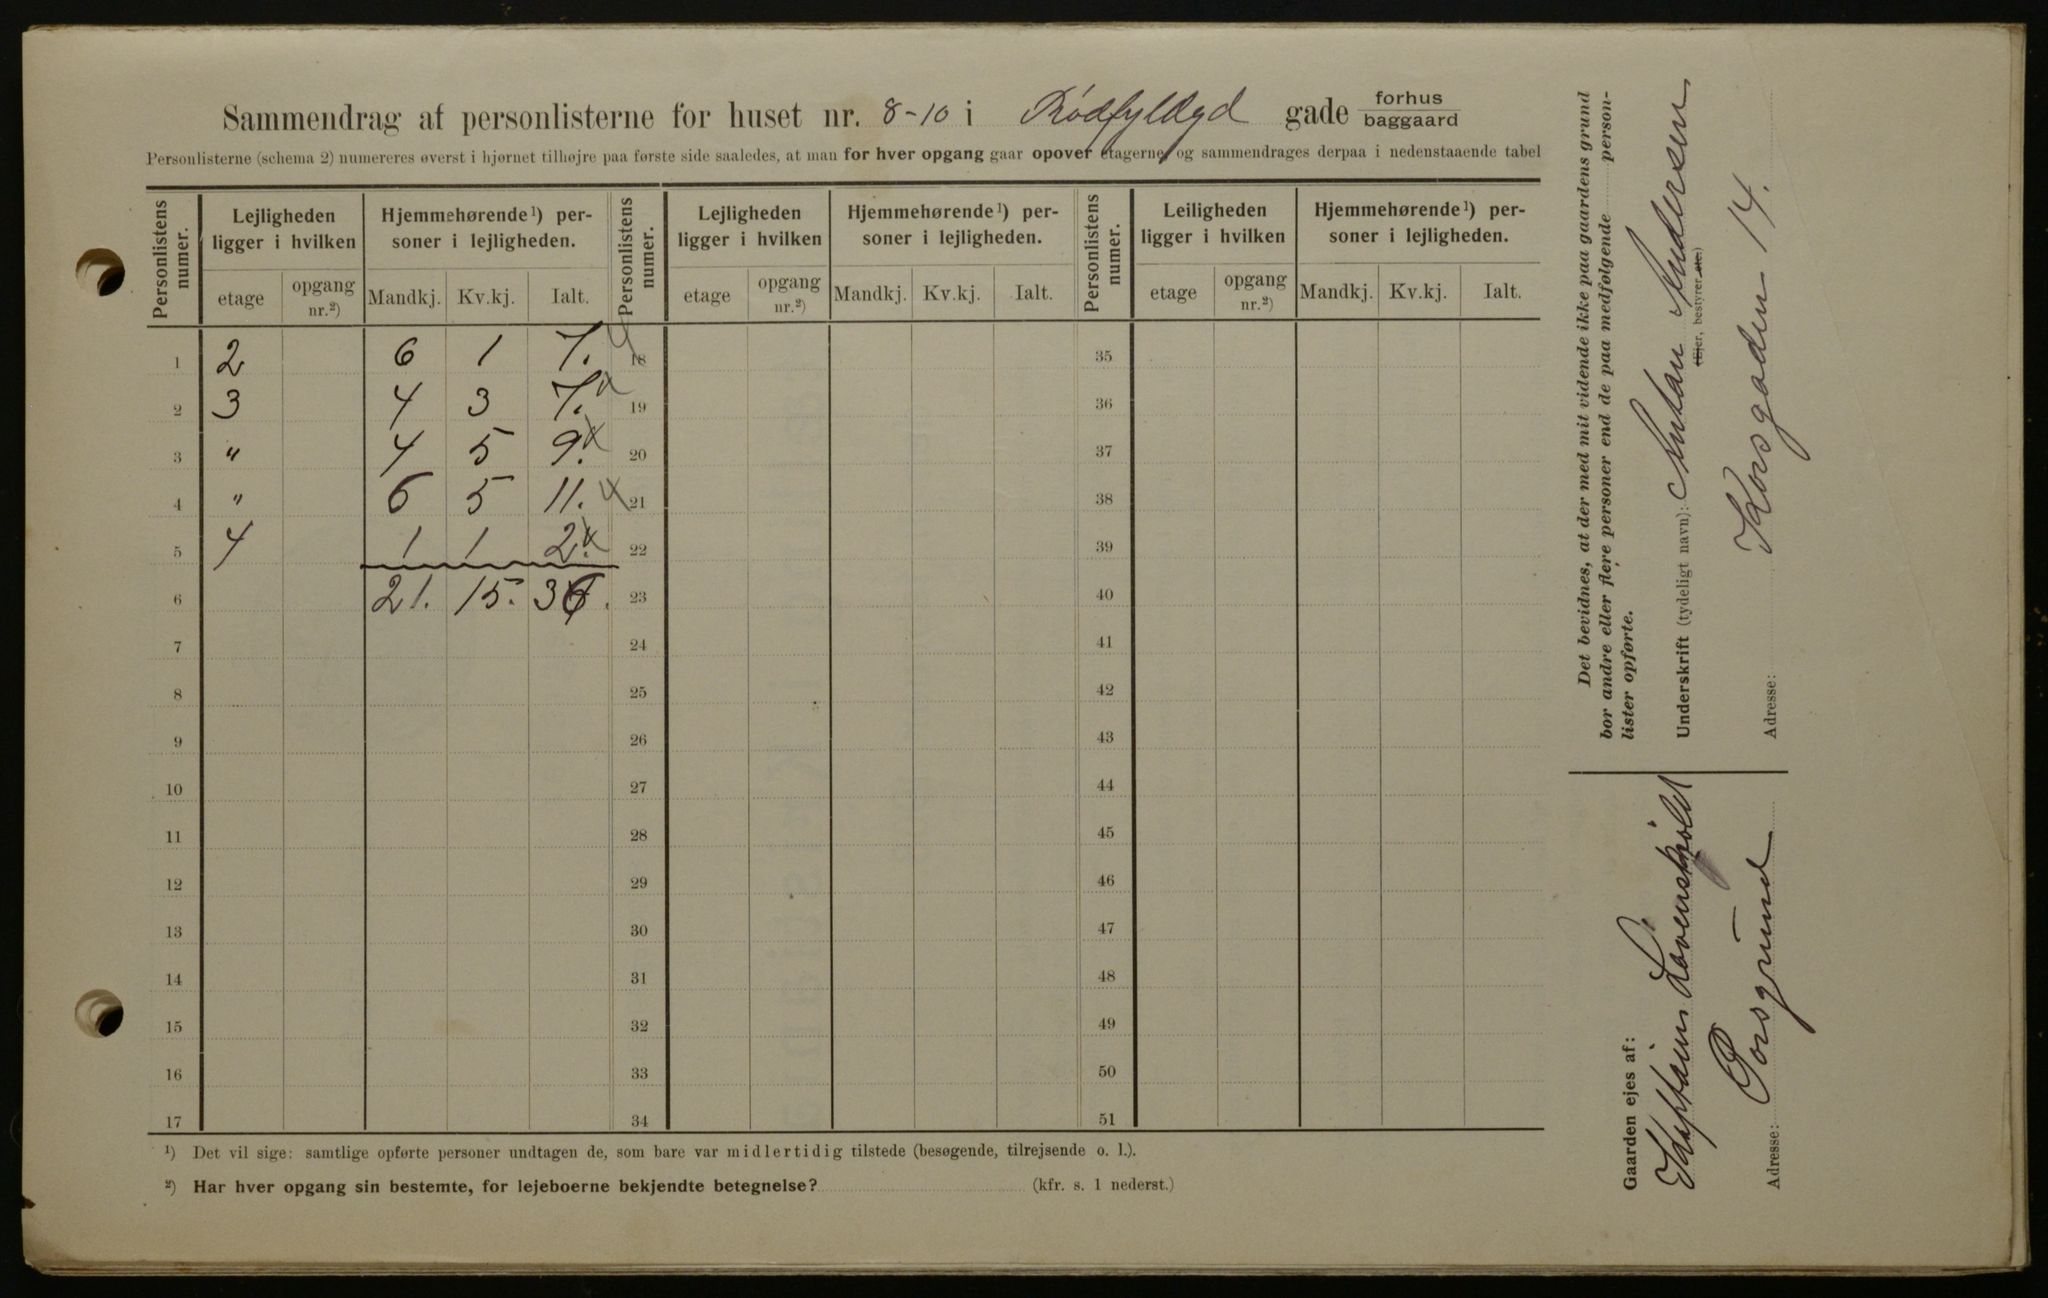 Sammendrag af personlisterne for huset nr. 8-10 i Rødfyldgd gade forhus baggaard
Personlisterne (schema 2) numereres øverst i hjørnet tilhøjre paa første side saaledes, at man for hver opgang gaar opover etagerne, og sammendrages derpaa i nedenstaaende tabel
Personlistens numer. Lejligheden ligger i hvilken Hjemmehørende ¹) personer i lejligheden. Personlistens numer. Lejligheden ligger i hvilken Hjemmehørende ¹) personer i lejligheden. Personlistens numer. Leiligheden ligger i hvilken Hjemmehørende ¹) personer i lejligheden.
etage opgang nr.²) Mandkj. Kv.kj. Ialt. etage opgang nr.²) Mandkj. Kv.kj. Ialt. etage opgang nr.²) Mandkj. Kv.kj. Ialt.
1 2 6 1 7. 18 35
2 3 4 3 7. 19 36
3 " 4 5 9. 20 37
4 " 6 5 11. 21 38
5 4 1 1 2. 22 39
6 21. 15. 36. 23 40
7 24 41
8 25 42
9 26 43
10 27 44
11 28 45
12 29 46
13 30 47
14 31 48
15 32 49
16 33 50
17 34 51
¹) Det vil sige: samtlige opførte personer undtagen de, som bare var midlertidig tilstede (besøgende, tilrejsende o. l.).
²) Har hver opgang sin bestemte, for lejeboerne bekjendte betegnelse? (kfr. s. 1 nederst.)
Det bevidnes, at der med mit vidende ikke paa gaardens grund
bor andre eller flere personer end de paa medfølgende person-
lister opførte.
Underskrift (tydeligt navn): Anton Andersen
(Ejer, bestyrer etc.)
Adresse: Korsgaden 14.
Gaarden ejes af:
Kaptain Løvenskiold
Adresse: Porsgrund